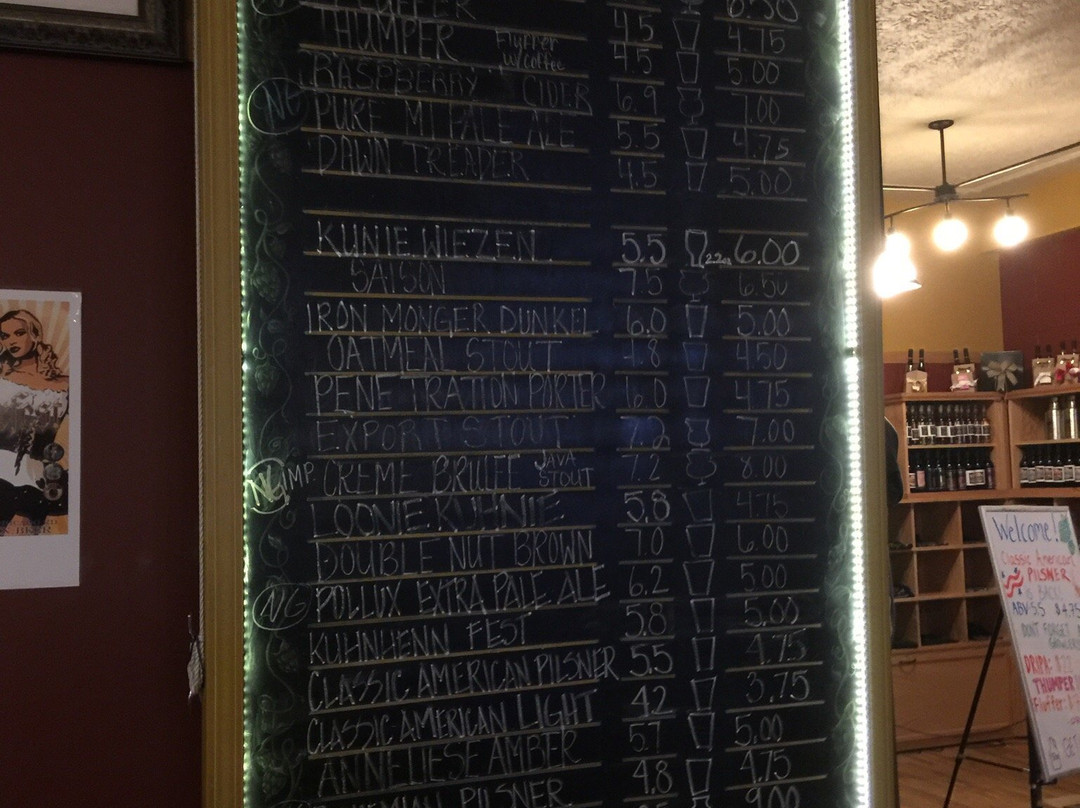 THUMPER Fluffer w/coffee 4.5 4.75
4.5 5.00
NG RASPBERRY CIDER 6.9 7.00
PURE MI PALE ALE 5.5 4.75
DAWN TREADER 4.5 5.00
KUNIE WIEZEN 5.5 22oz 6.00
SAISON 7.5 6.50
IRON MONGER DUNKEL 6.0 5.00
OATMEAL STOUT 4.8 4.50
PENETRATION PORTER 6.0 4.75
EXPORT STOUT 7.2 7.00
NG IMP CREME BRULEE JAVA STOUT 7.2 8.00
LOONIE KUHNIE 5.8 4.75
DOUBLE NUT BROWN 7.0 6.00
NG POLLUX EXTRA PALE ALE 6.2 5.00
KUHNHENN FEST 5.8 5.00
CLASSIC AMERICAN PILSNER 5.5 4.75
CLASSIC AMERICAN LIGHT 4.2 3.75
ANNELIESE AMBER 5.7 5.00
PILSNER 4.8 4.75
9.00
Welcome!
Classic American
PILSNER
is BACK!
ABV 5.5 $4.75
DONT FORGET
GROWLERS
DRIPA:
THUMPER
Fluffer: